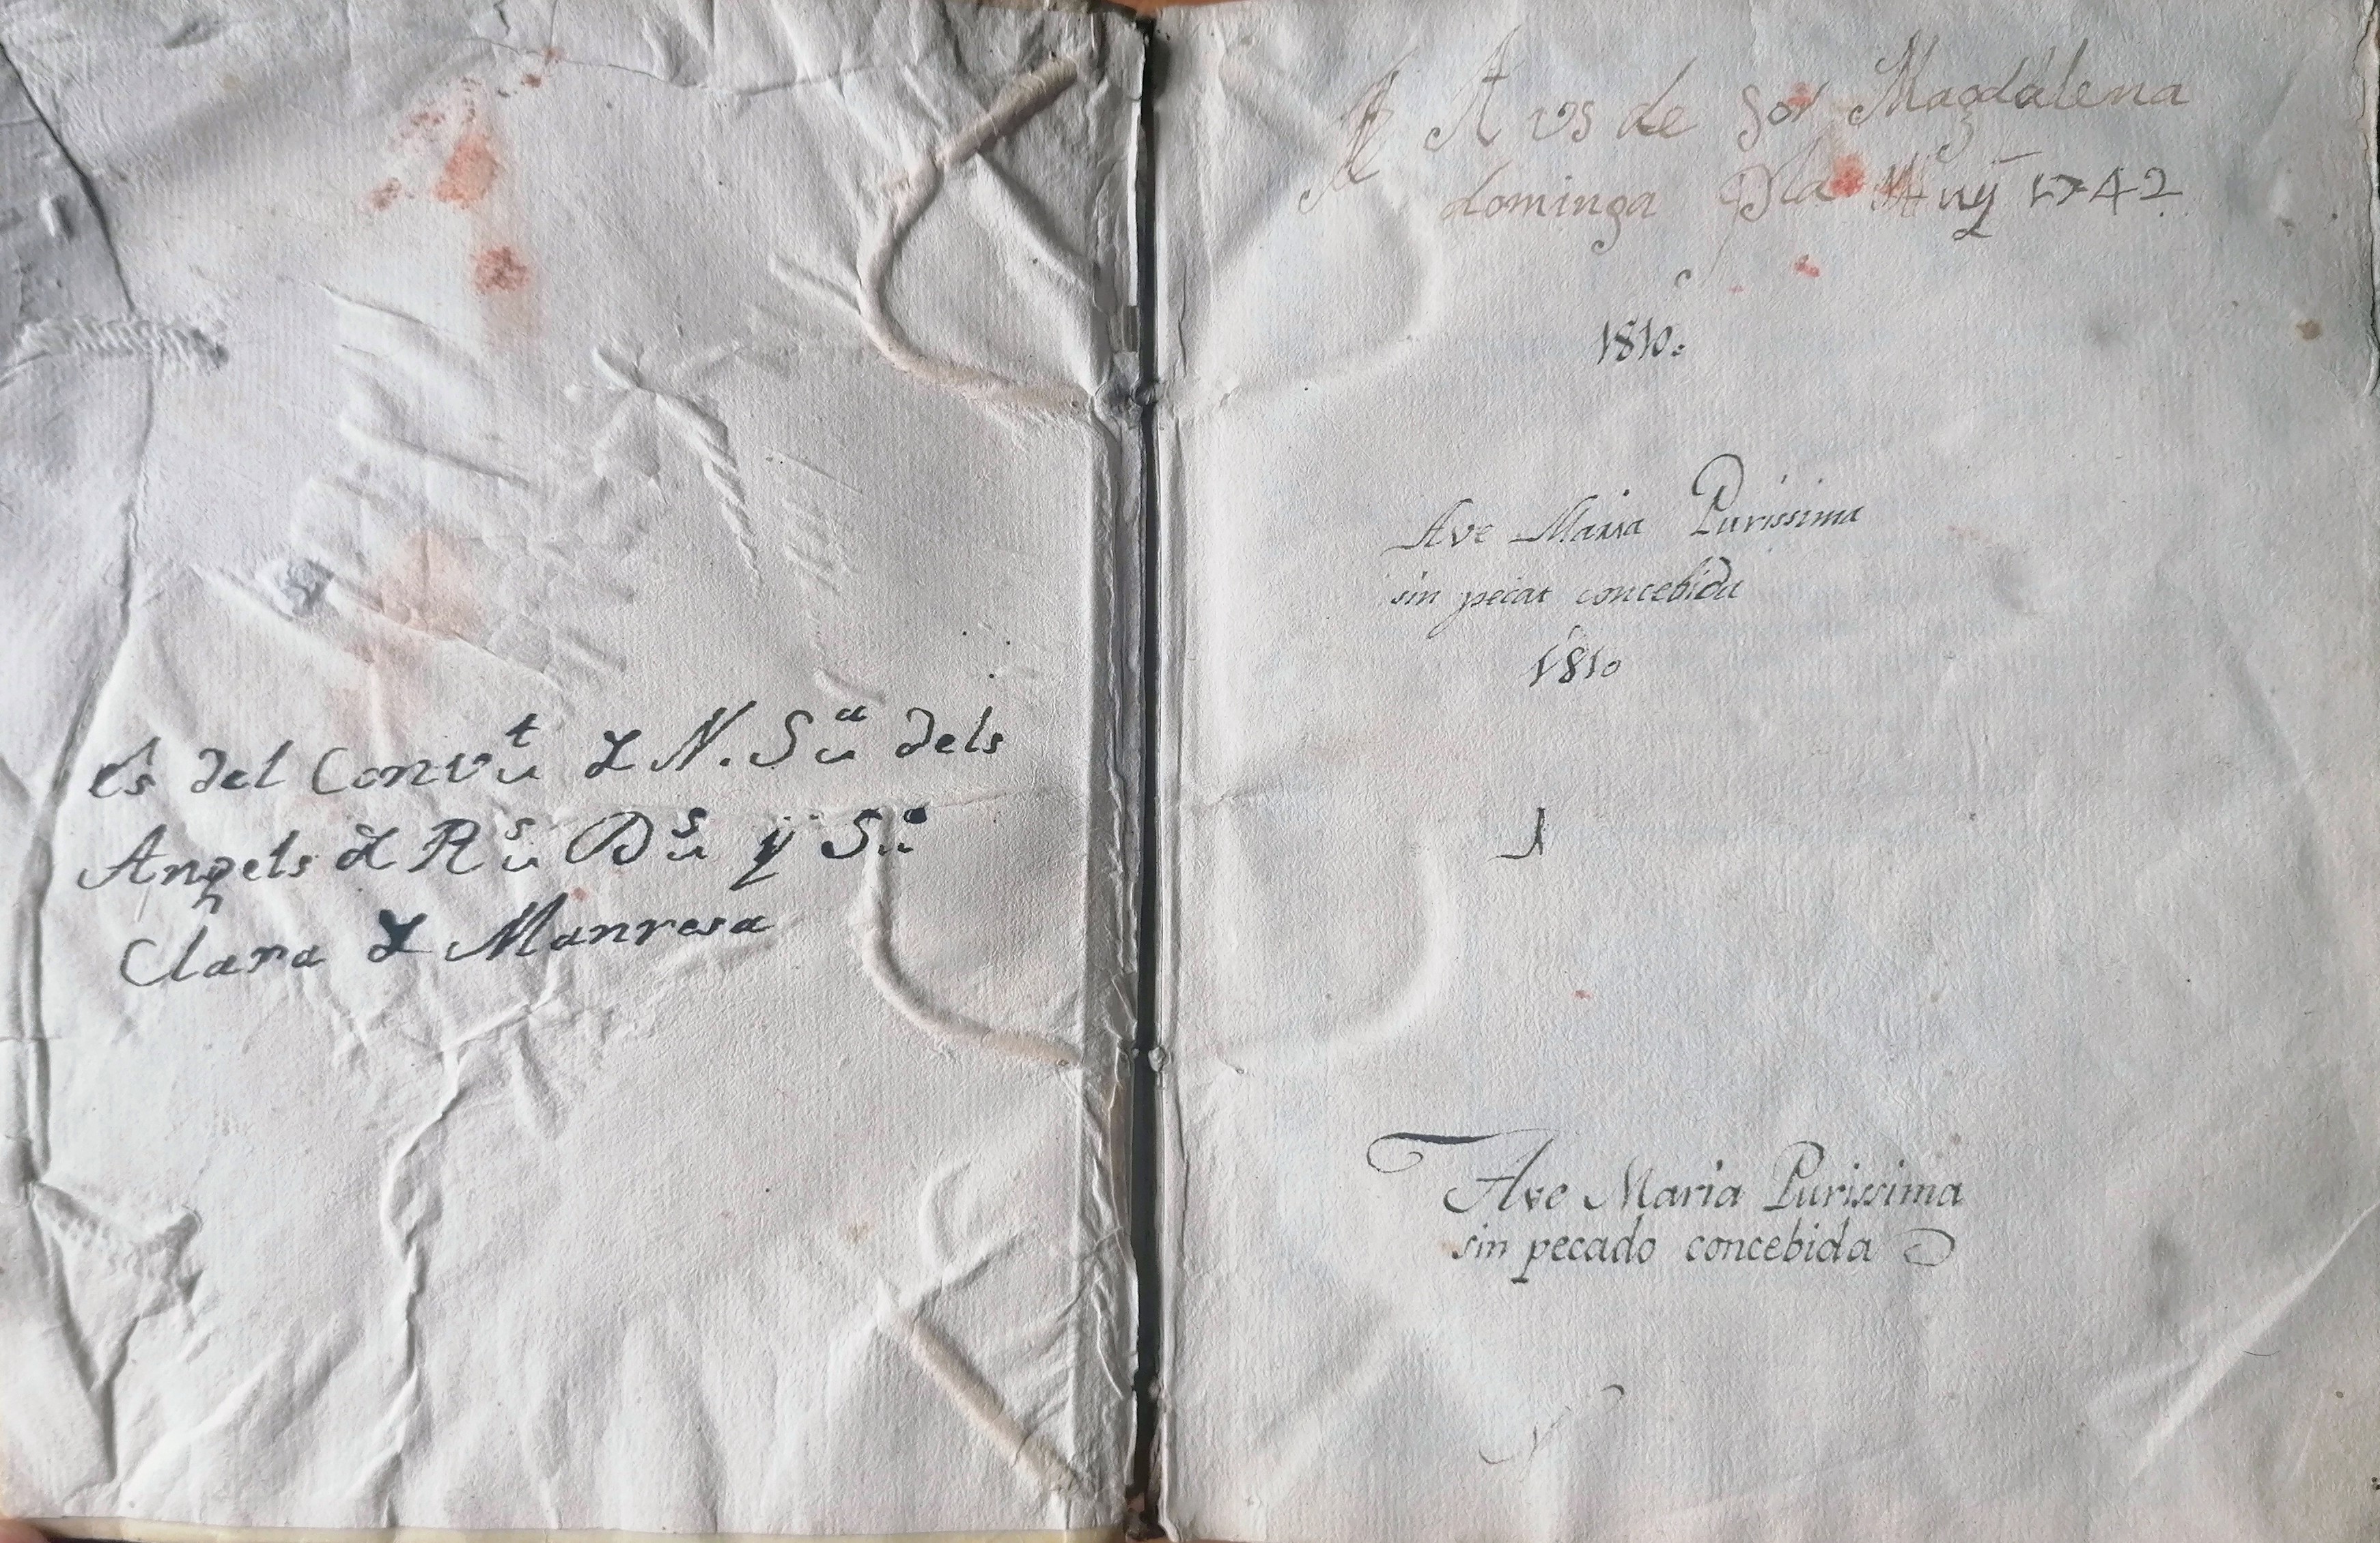 Es del Convt de N. Sa dels
Angels de Rs Ds y Sa
Clara de Manresa
A us de Sor Magdalena
dominga Pla Any 1742
1810.
Ave Maria Purissima
sin pecat concebida
1810
Ave Maria Purissima
sin pecado concebida